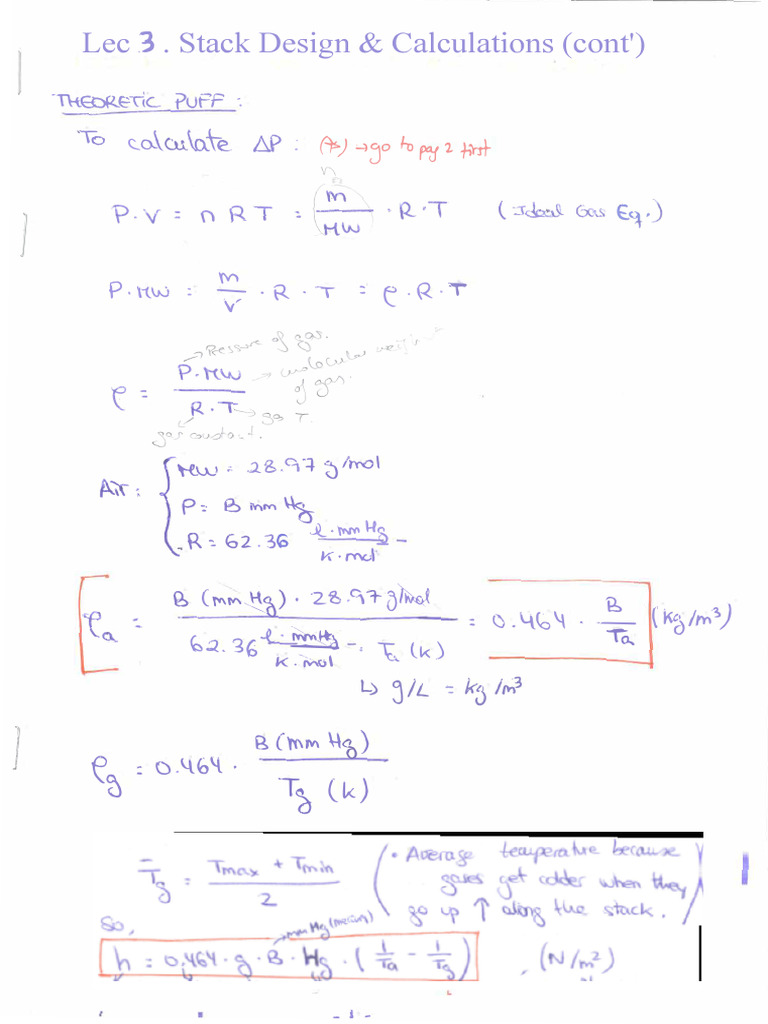 Lec 3. Stack Design & Calculations (cont')
THEORETIC PUFF:
To calculate ΔP: (*s) → go to pag 2 first
n
P.V = n R T = m/MW . R.T (Ideal Gas Eq.)
P.MW = m/V . R . T = ρ.R.T
→ Pressure of gas.
ρ = P.MW / R.T → molecular weight of gas.
→ gas T.
gas constant.
Air: { MW = 28.97 g/mol
P = B mmHg
R = 62.36 l.mmHg / K.mol
ρa = B (mmHg) . 28.97 g/mol / 62.36 l.mmHg/K.mol . Ta (K) = 0.464 . B/Ta (kg/m³)
↳ g/L = kg/m³
ρg = 0.464 . B (mmHg) / Tg (K)
T̄g = Tmax + Tmin / 2 (• Average temperature because
gases get colder when they
go up ↑ along the stack.)
so,
→ mmHg (mean)
h = 0.464 . g . B . Hg . (1/Ta - 1/Tg) , (N/m²)